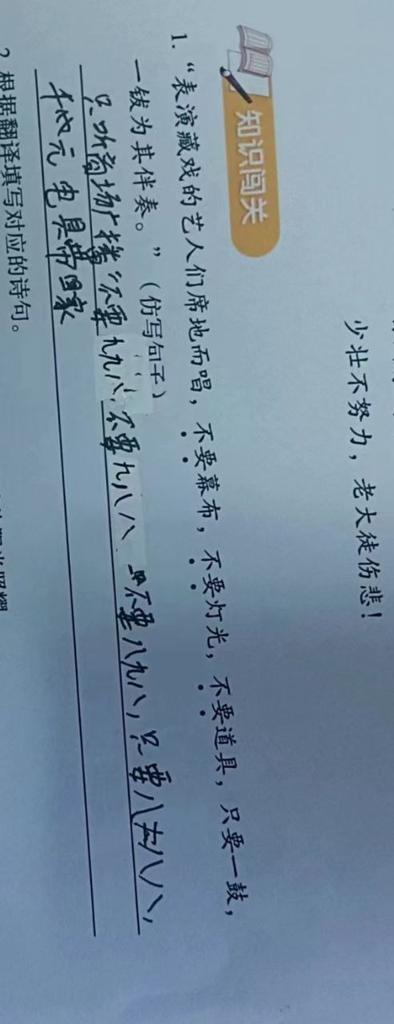 少壮不努力，老大徒伤悲！
知识闯关
1. “表演藏戏的艺人们席地而唱，不要幕布，不要灯光，不要道具，只要一鼓，
一钹为其伴奏。”（仿写句子）
只听商场广播“不要九九八，不要九八八 不要八九八，只要八八八，
千 元 电具带回家
2. 根据翻译填写对应的诗句。